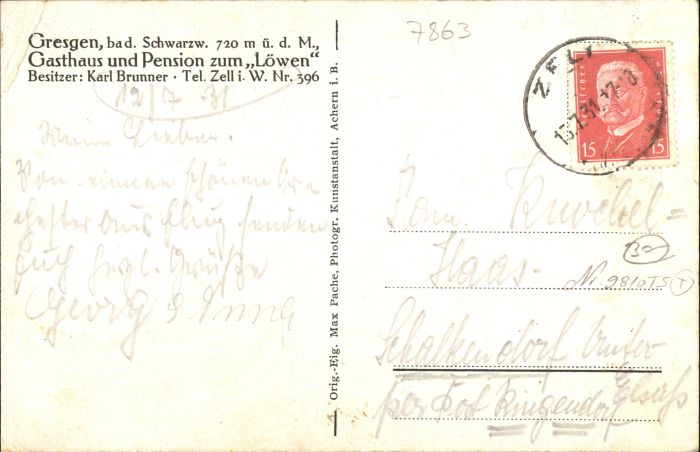 7863
Gresgen, bad. Schwarzw. 720 m ü. d. M.,
Gasthaus und Pension zum „Löwen“
Besitzer: Karl Brunner · Tel. Zell i. W. Nr. 396
12/7 31
Lieben
Von einem schönen
aus flug senden
Euch herzl. Grüße
Georg & Anna
Orig.-Eig. Max Pache, Photogr. Kunstanstalt, Achern i. B.
ZELL
15 15
Fam. Knochel=
Haas.
Nr. 2810TS
Schalkendorf Unter-
Elsass
per Post Ringendorf